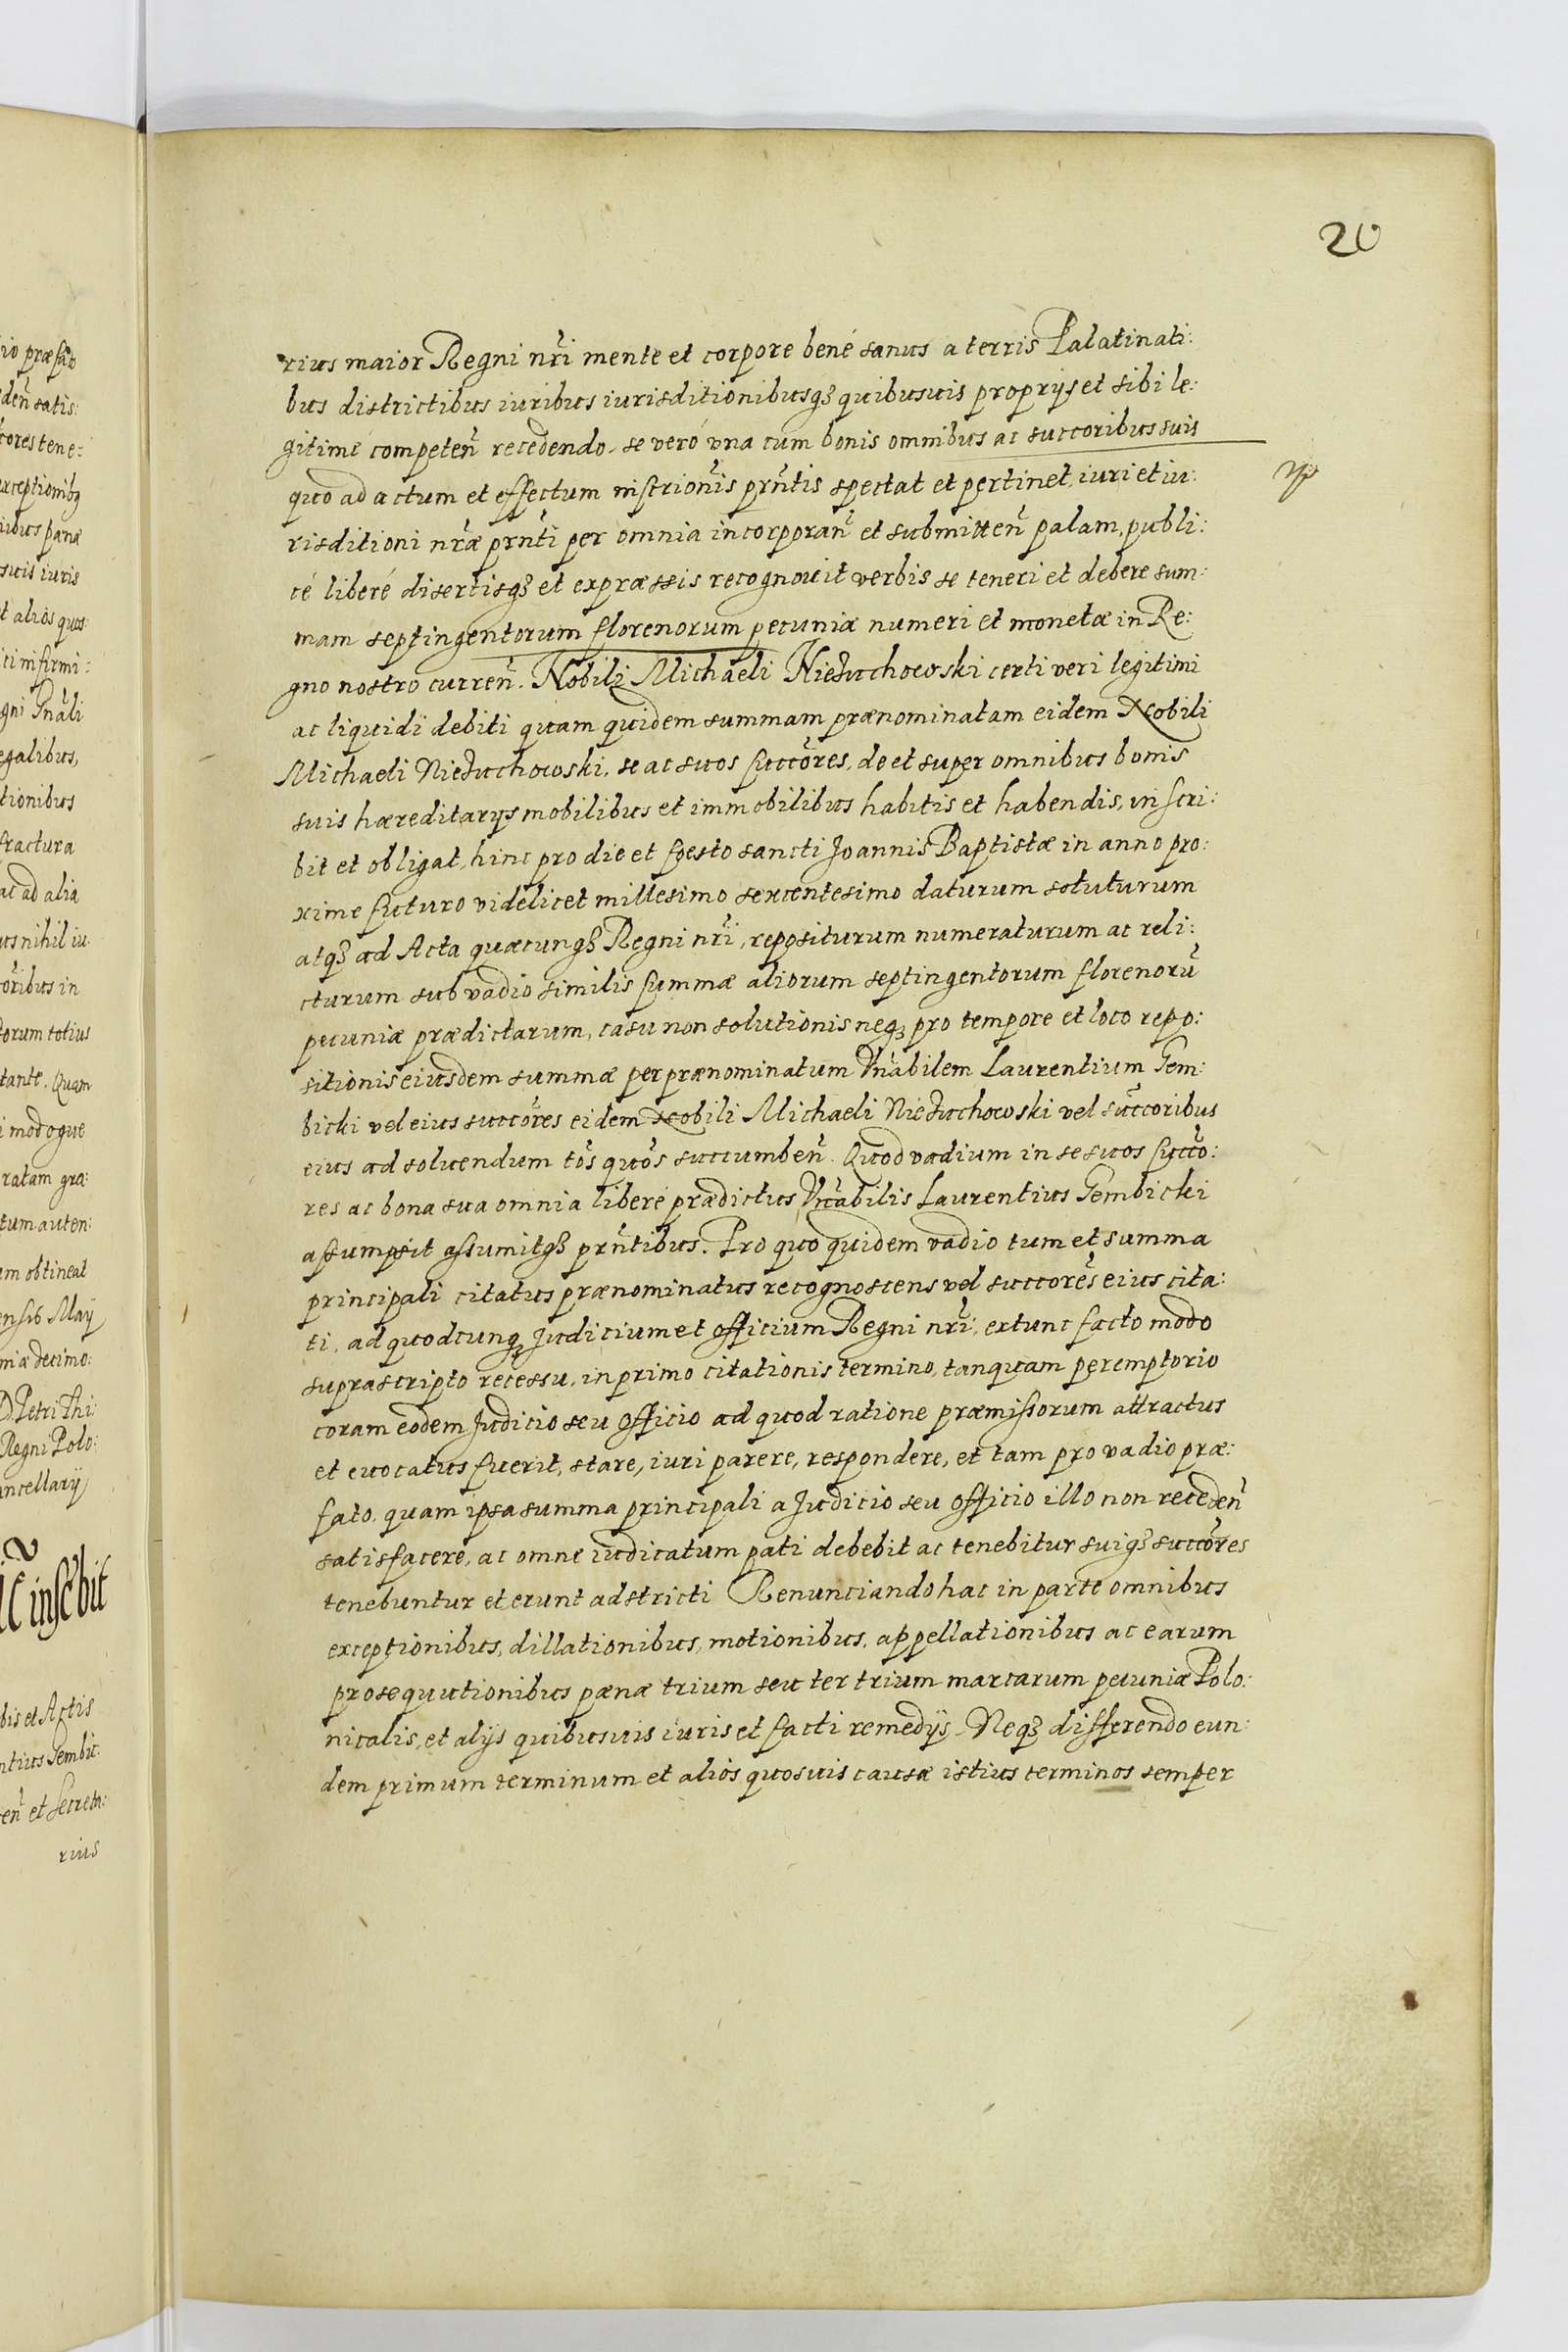 20
rius maior Regni nr̃i mente et corpore bené sanus a terris Palatinati:
bus districtibus iuribus iurisditionibusq3 quibusuis proprijs et sibi le:
gitimé competeñ recedendo. se veró vna cum bonis omnibus ac succoribus suis
quo ad actum et effectum inscrionĩs prñtis spectat et pertinet, iuri et iu:
risditioni nr̃æ prñti per omnia incorporañ et submitteñ palam, publi:
cé liberé disertisq3 et expræssis recognouit verbis se teneri et debere sum:
mam septingentorum florenorum pecuniæ numeri et monetæ in Re:
gno nostro curreñ. Nobili Michaeli Nieżuchowski certi veri legitimi
ac liquidi debiti quam quidem summam prænominatam eidem Nobili
Michaeli Nieżuchowski, se ac suos succõres, de et super omnibus bonis
suis hæreditarijs mobilibus et immobilibus habitis et habendis, inscri:
bit et obligat, hinc pro die et festo sancti Joannis Baptistæ in anno pro:
xime futuro videlicet millesimo sexcentesimo daturum soluturum
atq3 ad Acta quæcunq3 Regni nr̃i, repositurum numeraturum ac reli:
cturum sub vadio similis summæ aliorum septingentorum florenorũ
pecuniæ prædictarum, casu non solutionis neq3 pro tempore et loco repo:
sitionis eiusdem summæ per prænominatum Vñabilem Laurentium Gem:
bicki vel eius succõres eidem Nobili Michaeli Nieżuchowski vel succõribus
eius ad soluendum tõs quõs succumbeñ. Quod vadium in se suos succõ:
res ac bona sua omnia liberé prædictus Vñabilis Laurentius Gembicki
assumpsit assumitq3 prñtibus. Pro quo quidem vadio tum et summa
principali citatus prænominatus recognoscens vel succorẽs eius cita:
ti, ad quodcunq3 Judicium et officium Regni nr̃i, extunc facto modo
suprascripto recessu, in primo citationis termino, tanquam peremptorio
coram eodem Judicio seu officio ad quod ratione præmissorum attractus
et euocatus fuerit, stare, iuri parere, respondere, et tam pro vadio præ:
fato, quam ipsa summa principali a Judicio seu officio illo non recedeñ
satisfacere, ac omne iudicatum pati debebit ac tenebitur suiq3 succõres
tenebuntur et erunt adstricti Renunciando hac in parte omnibus
exceptionibus, dillationibus, motionibus, appellationibus ac earum
prosequutionibus pænæ trium seu ter trium marcarum pecuniæ Polo:
nicalis, et alijs quibusuis iuris et facti remedijs. Neq3 differendo eun:
dem primum terminum et alios quosuis causæ istius terminos semper